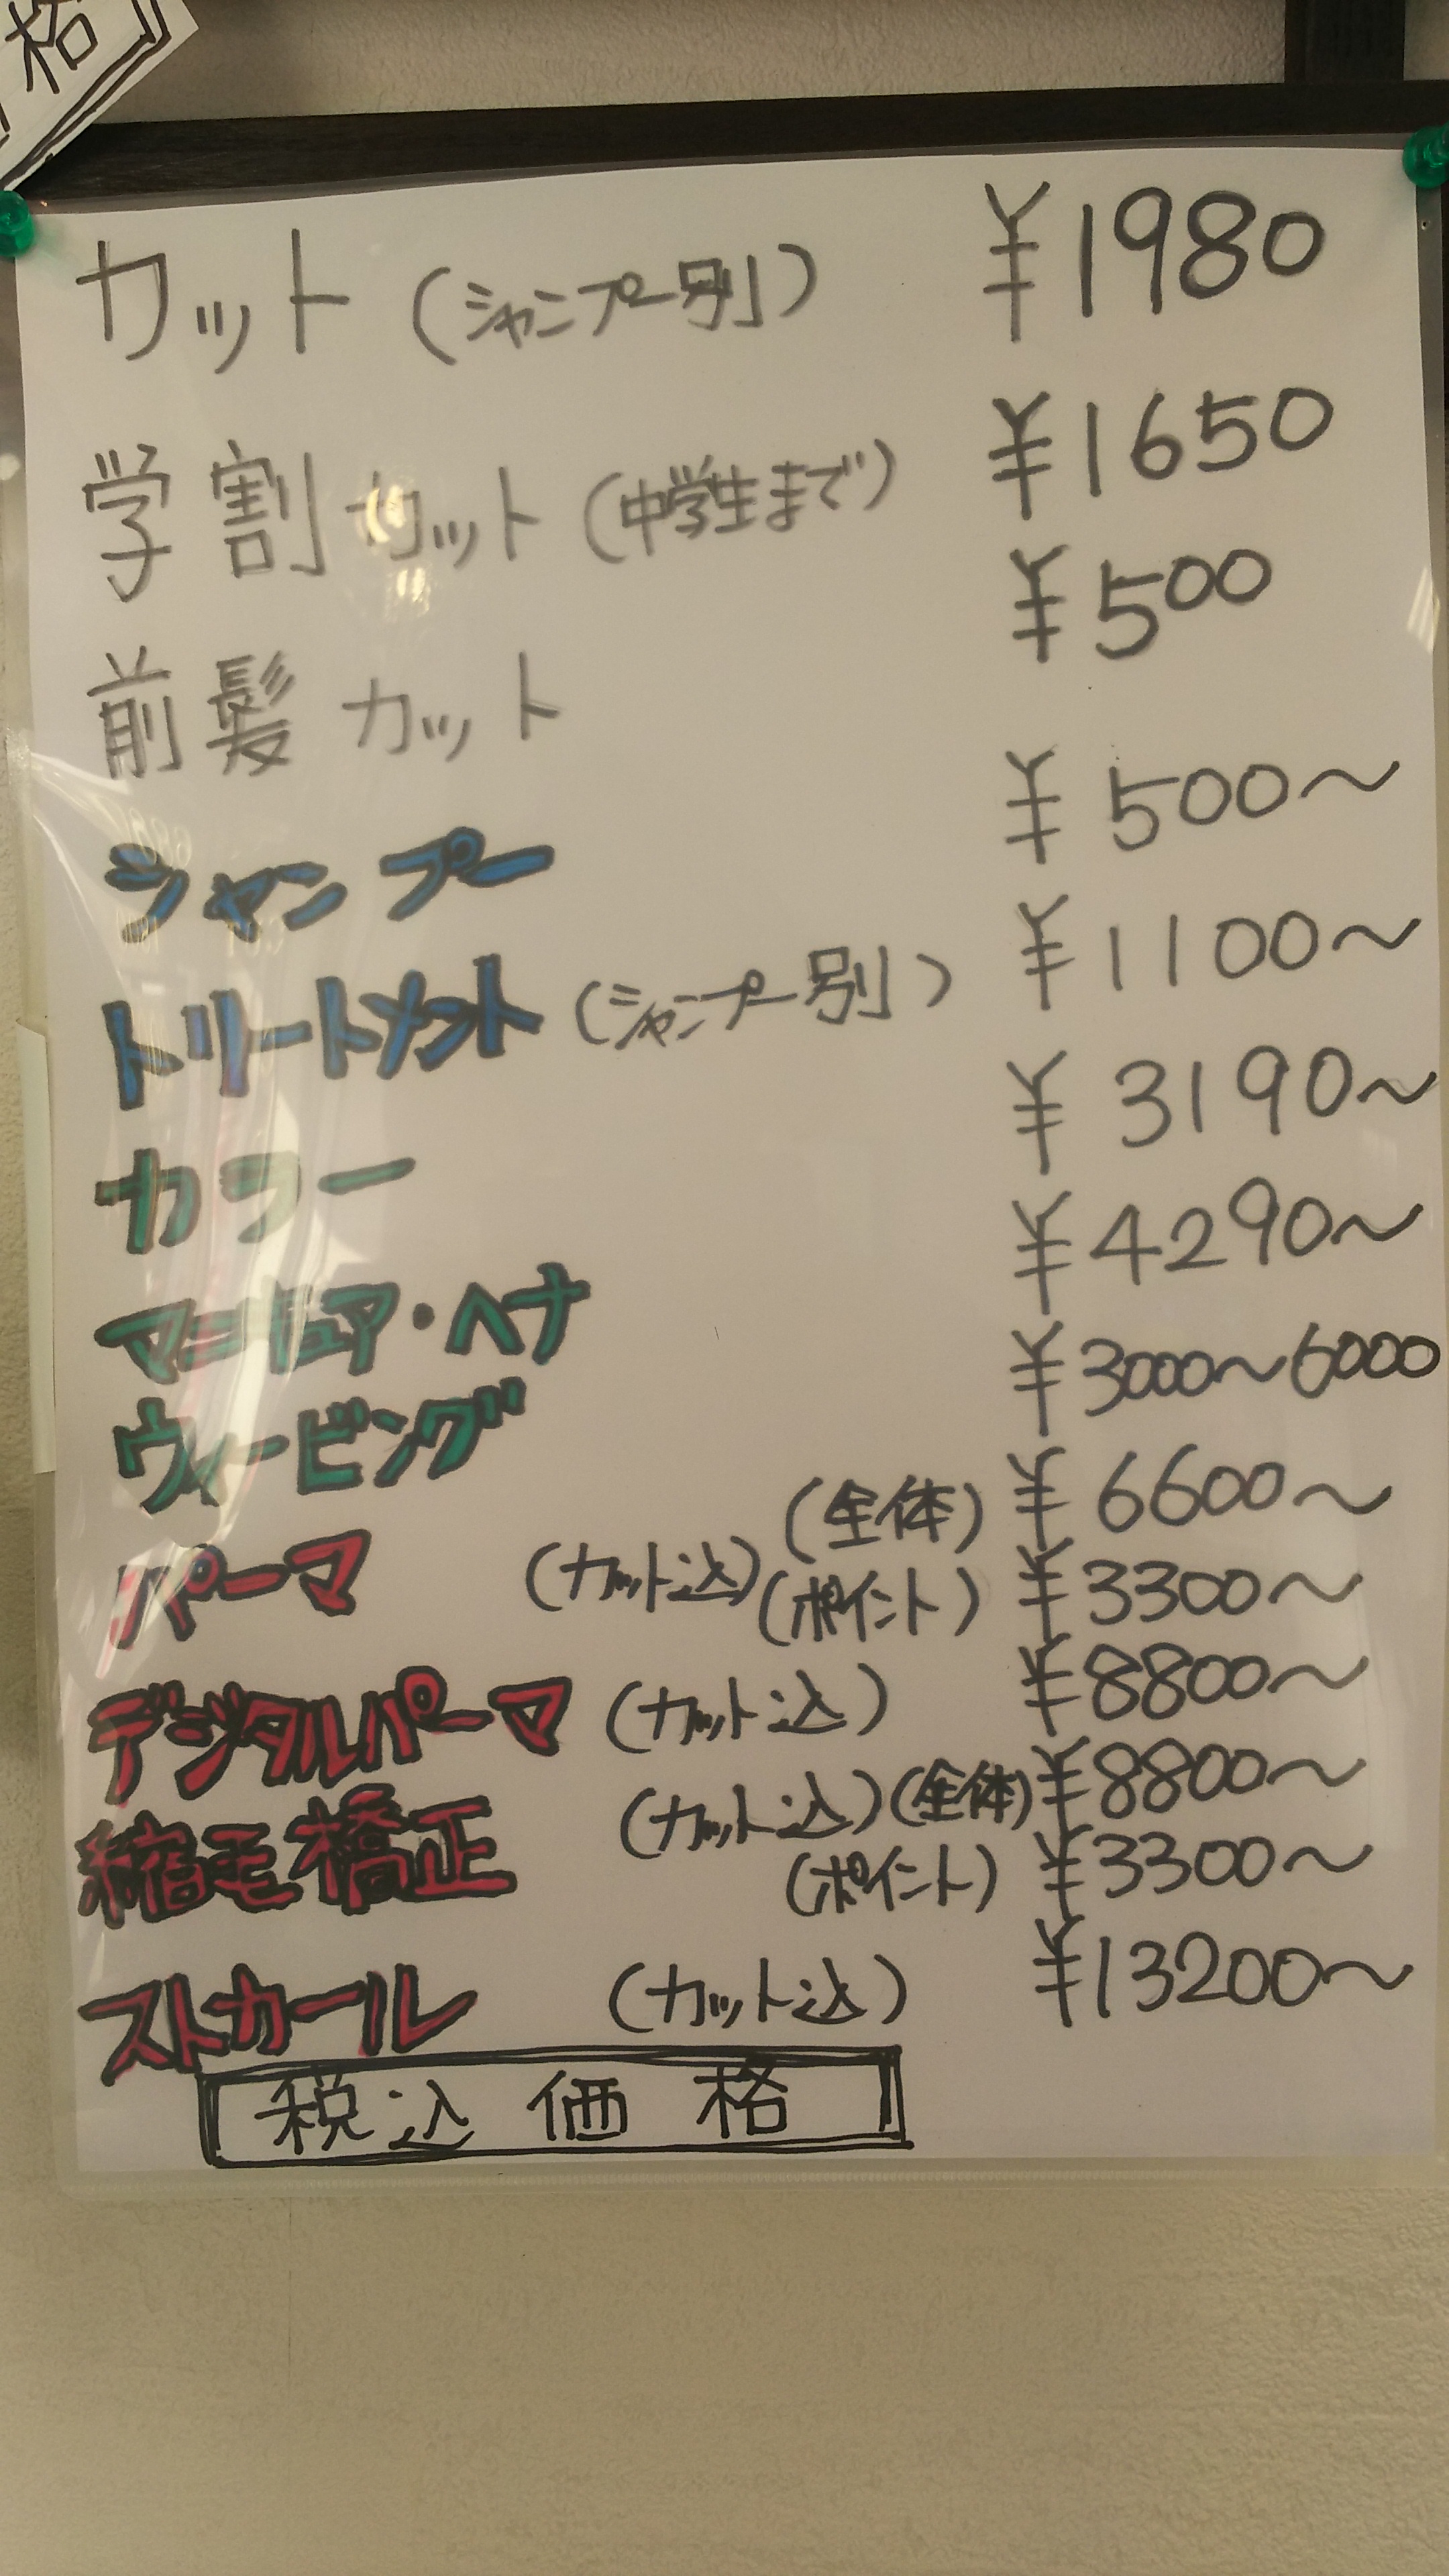 格
カット（シャンプー別） ¥1980
学割カット（中学生まで） ¥1650
前髪カット ¥500
シャンプー ¥500〜
トリートメント（シャンプー別） ¥1100〜
カラー ¥3190〜
マニキュア・ヘナ ¥4290〜
ウィービング ¥3000〜6000
パーマ （カット込）（全体） ¥6600〜
（ポイント） ¥3300〜
デジタルパーマ （カット込） ¥8800〜
縮毛橋正 （カット込）（全体） ¥8800〜
（ポイント） ¥3300〜
ストカール （カット込） ¥13200〜
税込価格